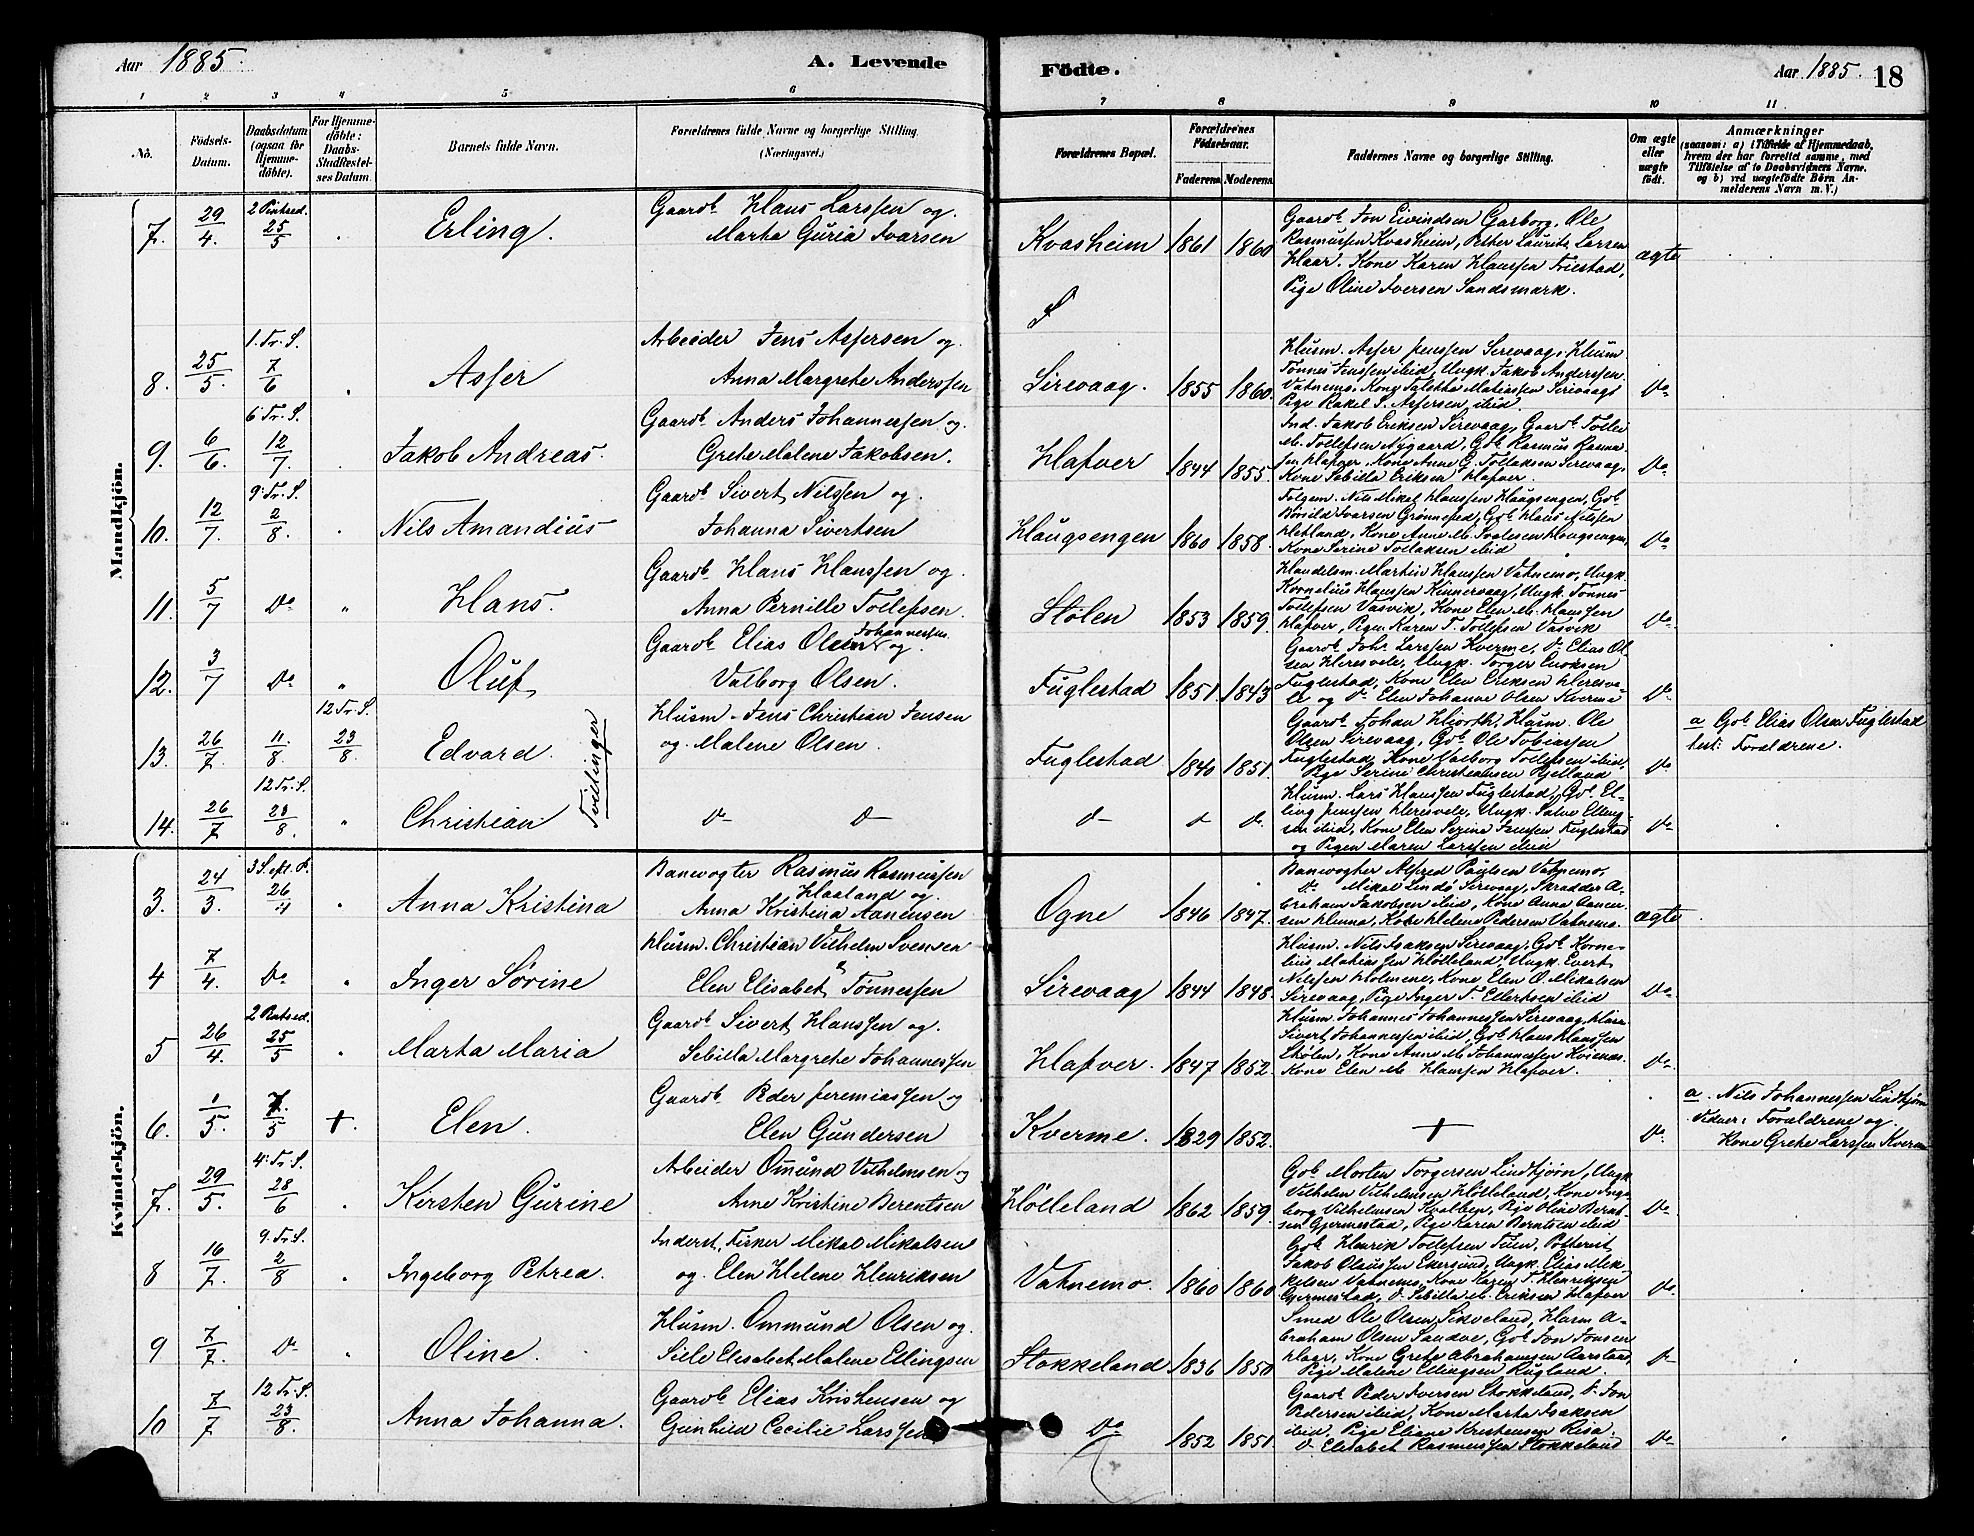 Aar 1885. A. Levende
Födte. Aar 1885. 18
1 2 3 4 5 6
7 8 9 10 11
No. Födsels-Datum. Daabsdatum (ogsaa for Hjemme-döbte). For Hjemme-döbte: Daabs-Stadfæstel-ses Datum. Barnets fulde Navn. Forældrenes fulde Navne og borgerlige Stilling. (Næringsvei.)
Forældrenes Bopæl. Forældrenes Födselsaar. Faderens Moderens Faddernes Navne og borgerlige Stilling. Om ægte eller uægte födt. Anmærkninger (saasom: a) i Tilfælde af Hjemmedaab, hvem der har forrettet samme, med Tilföielse af to Daabsvidners Navne. og b) ved uægtefödte Börn An-melderens Navn m. V.)
Mandkjön.
7. 29/4. 2 Pintsed. 25/5 Erling. Gaardb. Hans Larssen og
Marta Guria Ivarsen
Kvasheim 1861 1860 ægte
Gaardb. Jon Eivindsen Garborg, Ole
Rasmussen Kvasheim, Petter Laurits Larsen
Haar. Kone Karen Hanssen Friestad,
Pige Oline Iversen Sandsmark.
8. 25/5. 1. Tr. S. 7/6 " Asser Arbeider Jens Assersen og
Anna Margrete Anderssen
Sirevaag. 1855 1860 Do
Husm. Asser Jenssen Sirevaag, Husm
Tønnes Jenssen ibid, Ungk. Jakob Anderssen
Vatnemo, Kone Taletta Matiassen Sirevaag
Pige Rakel S. Assersen ibid.
9. 6/6 6 Tr. S. 12/7. Jakob Andreas. Gaardb. Anders Johannessen og
Grete Malene Jakobsen.
Hafver 1844 1855. Do
Ind. Jakob Eriksen Sirevaag, Gaardb. Tollef
M. Tollefsen Nygaard, Gb. Rasmus Rasmus-
sen Hafver, Kone Anne G. Tollaksen Sirevaag,
Kone Sebilla Eriksen Hafver.
10. 12/7. 9. Tr. S. 2/8. " Nils Amandius Gaardb. Sivert Nilssen og
Johanna Sivertsen
Haugsengen 1860 1858. Do
Folgem. Nils Mikal Hanssen Haugsengen, Gb.
Ivarsen Gb. Hans Nilssen
Hetland, Kone Anne M. Haugsengen,
Kone Serine Tollaksen ibid
11. 5/7 Do " Hans. Gaardb. Hans Hanssen og
Anna Pernille Tollefsen.
Stølen 1853 1859. Do.
Handelsm. Martin Hanssen Vatnemo, Ungk.
Kornelius Hanssen Kinnervaag, Ungk. Tønnes
Tollefsen Vasvik, Kone Elen M. Hanssen
Hafver, Pigen Karen T. Tollefsen Vasvik
12. 3/7 Do " Oluf Gaardb. Elias Olsen Johannessen og
Valborg Olsen
Fuglestad 1851. 1843 Do
Gaardb. Joh. Larssen Kverme, Do Elias Ol-
sen Heresvele, Ungk. Torger Enoksen
Fuglestad, Kone Elen Eriksen Heresve-
le og Do Elen Johanne Olsen Kverme
13. 26/7. 11/8. 12 Tr. S. 23/8 Edvard. Tvillinger Husm. Jens Christian Jensen
og Malene Olsen.
Fuglestad 1840 1851 Do
Gaardb. Johan Hjorth, Husm. Ole
Olsen Sirevaag, Gb. Ole Tobiassen
Fuglestad, Kone Valborg Tollefsen ibid,
Pige Serine Christiansen Hjelland
a Gb. Elias Olsen Fuglestad
test: Forældrene.
14. 26/7 12 Tr. S. 23/8. " Christian Do Do
Do Do Do. Do
Husm. Lars Hanssen Fuglestad, Gb. El-
ling Jenssen Heresvele, Ungk. Salve Elling-
sen ibid, Kone Elen Serine Jenssen Fuglestad
og Pigen Maren Larssen ibid
Kvindekjön.
3. 24/3. 3 S. eft. P. 26/4 " Anna Kristina Banevogter Rasmus Rasmussen
Haaland og
Anna Kristina Aanensen
Ogne 1846 1847. ægte
Banevogter Alfred Paulsen Vatnemo,
Do Mikal Lindø Sirevaag, Skrædder A-
braham Jakobsen ibid, Kone Anna Aanen-
sen Kone Helene Pedersen Vatnemo
4 7/4. Do " Inger Sørine Husm. Christian Vilhelm Svensen
Elen Elisabet Tønnessen
Sirevaag 1844 1848. Do
Husm. Nils Isaksen Sirevaag, Gb. Korne-
lius Matiassen Hølleland, Ungk. Evert
Nilssen Holmene, Kone Elen O. Mikalsen
Sirevaag, Pige Inger T. Eilertsen ibid
5 26/4 2 Pintsed. 25/5 " Marta Maria Gaardb. Sivert Hanssen og.
Sebilla Margrete Johannessen
Hafver. 1847 1852. Do
Husm. Johannes Johannessen Sirevaag, Husm
Sivert Johannessen ibid, Gb. Hans Hanssen
Stølen, Kone Anne M. Johannessen
Kone Elen M. Hanssen Hafver.
6. 1/5. 7/5 +. Elen. Gaardb. Peder Jeremiassen og
Elen Gundersen
Kverme. 1829 1852. + Do.
a. Nils Johannessen Lindtjørn
Vidner: Forældrene og
Kone Grete Larssen Kverme
7. 29/5. 4. Tr. S. 28/6 " Kirsten Gurine Arbeider Omund Vilhelmsen og
Anne Kristine Berentsen
Hølleland 1862 1859. Do
Gb. Morten Torgersen Lindtjørn, Ungk
Vilhelm Vilhelmsen Hølleland, Kone Inge-
borg Vilhelmsen Pige Oline Bernt-
sen Gjermestad, Pige Karen Berntsen ibid
8 16/7. 9. Tr. S. 2/8 " Ingeborg Petrea. Inderst, Fisker Mikal Mikalsen
og Elen Helene Henriksen
Vatnemo. 1860 1860 Do.
Gb. Henrik Tollefsen Tuen,
Jakob Olaussen Ekersund, Ungk. Elias Mik-
kelsen Vatnemo, Kone Karen T. Henriksen
Gjermestad, Do Sebilla M. Eriksen Hafver
9 7/7. Do " Oline. Husm. Ommund Olsen og
Siele Elisabet Malene Ellingsen
Stokkeland 1836 1850 Do
Smed Ole Olsen Sikveland, Husm A-
braham Olsen Sandve, Gb. Jon Jonsen
Haar, Kone Grete Abrahamsen Aarstad,
Pige Malene Ellingsen Rugland
10 7/7 12 Tr. S. 23/8. Anna Johanna. Gaardb. Elias Kristensen og
Gunhild Cecilie Larssen
Do 1852 1851 Do
Gaardb. Peder Iversen Stokkeland, Do Jon
Pedersen ibid, Kone Marta Isaksen
ibid, Pige Eliane Kristensen Risa.
Do Elisabet Rasmussen Stokkeland